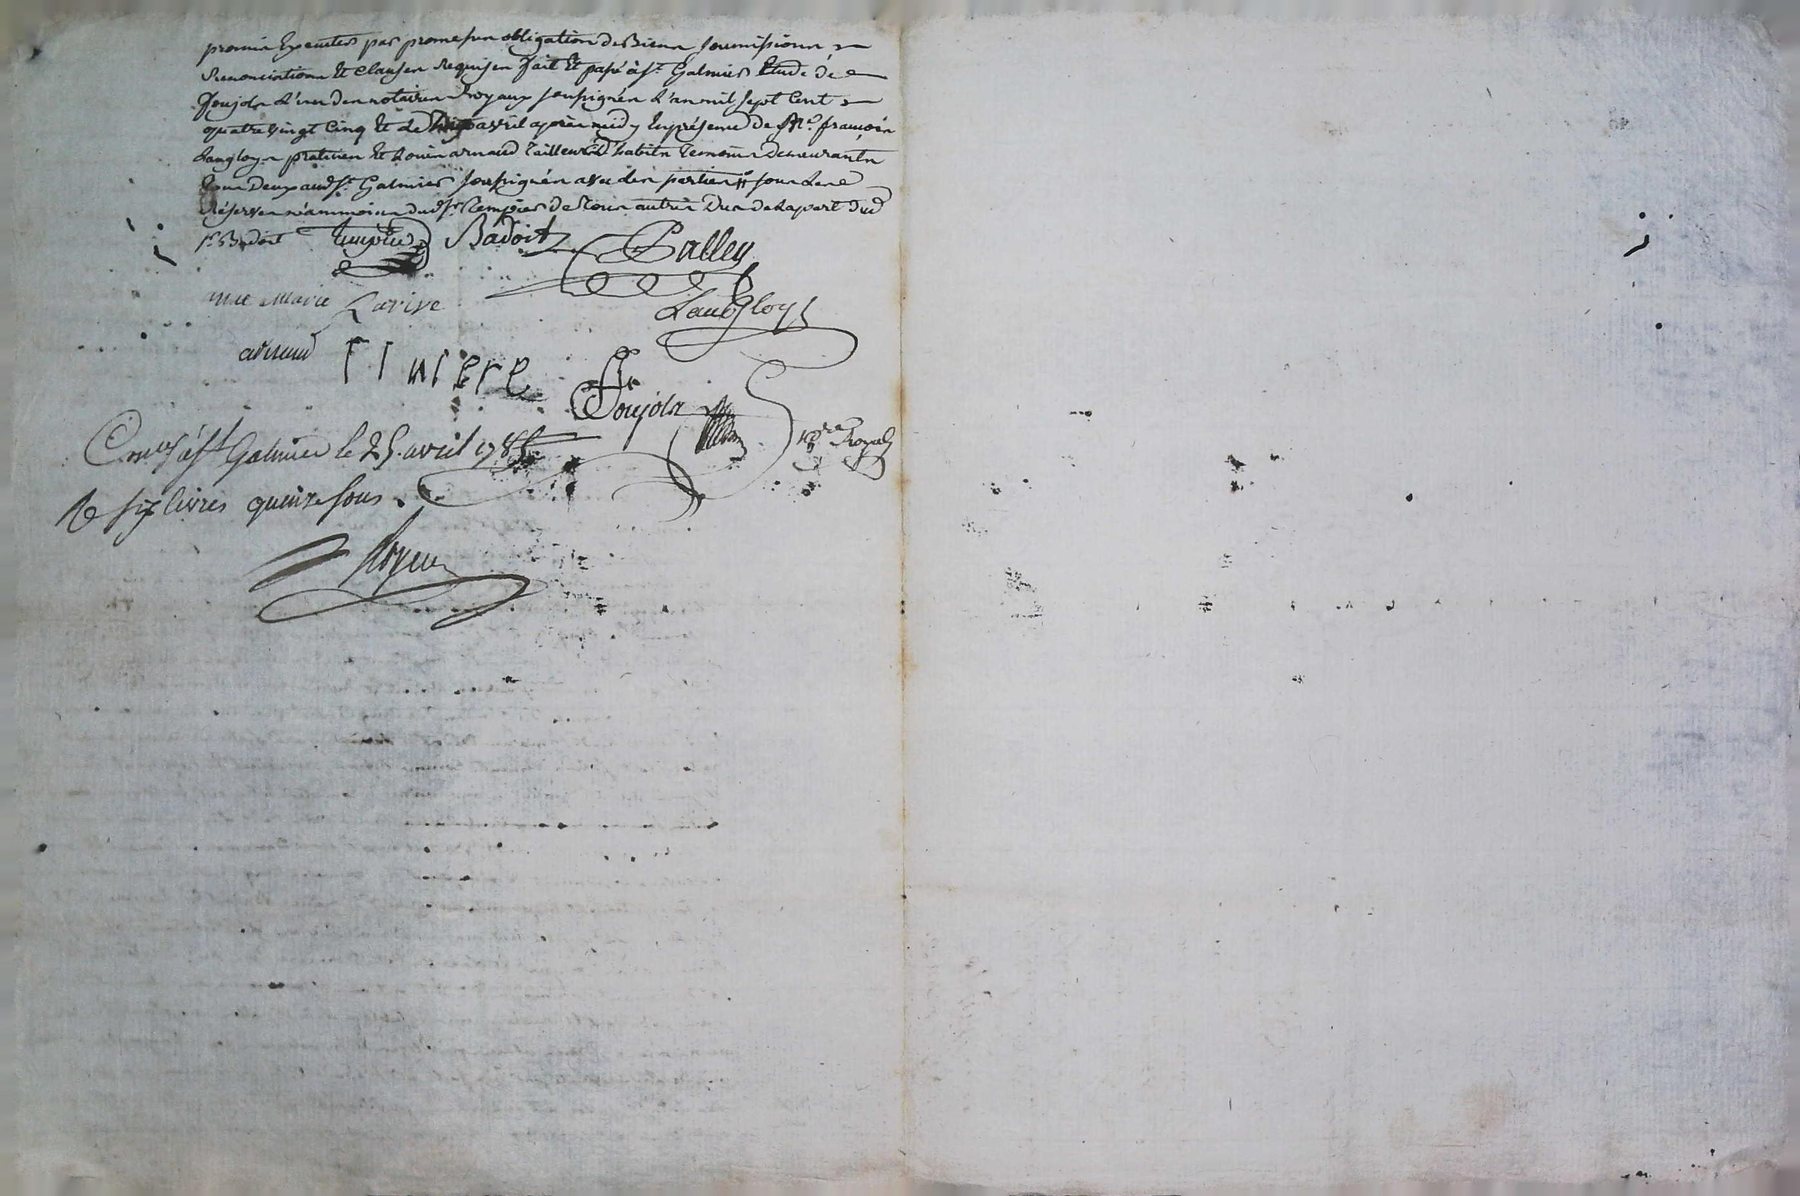 promis executer par promesses obligation de Biens soumissions
Renonciations Et clauses Requises fait Et passé à St. Galmier Etude de
Poujols L'un des notaires Royaux soussignés L'an mil sept Cent
quatre vingt Cinq Et Le avril après midy En présence de Me. francois
Langloys praticien Et Louis arnaud Tailleur d'habits Temoins Demeurants
tous Deux audt. St. Galmier soussignés avec les parties sous La
Réserve néammoins dudt. sr. Tempier de Tous autres Dus de La part dud
sr. Badoit Tempier Badoit Balley
marie Larive Langloys
arnaud flniere Poujols nore Royal
St Galmier le 25 avril 1785
Re six livres quinze sous
Royer